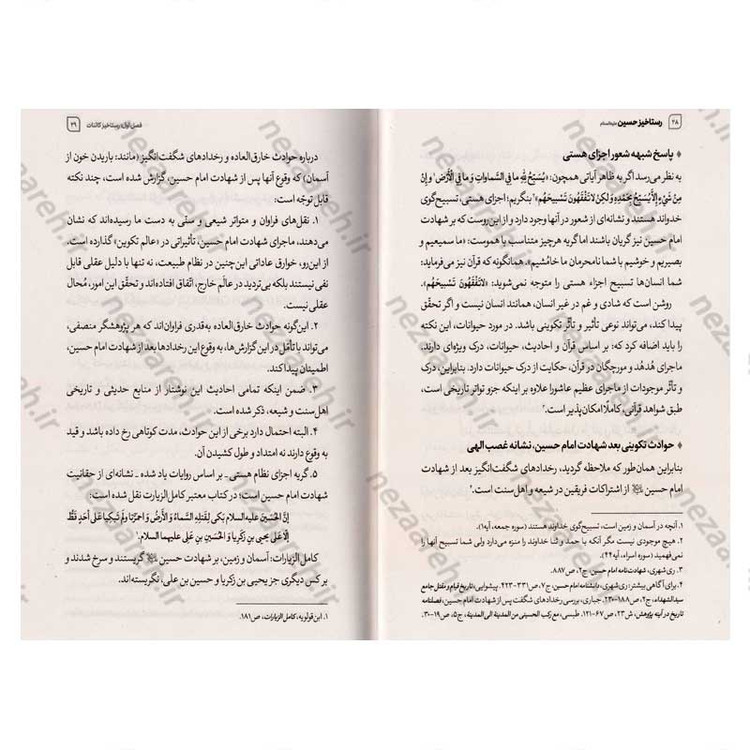 ۲۸ رستاخیز حسین علیه‌السلام
♦ پاسخ شبهه شعور اجزای هستی
به نظر می‌رسد اگر به ظاهر آیاتی همچون: «یُسَبِّحُ لِلَّهِ ما فِي السَّماواتِ وَ ما فِي الْأَرْضِ¹ وَ إِنْ
مِنْ شَيْءٍ إِلَّا يُسَبِّحُ بِحَمْدِهِ وَ لكِنْ لا تَفْقَهُونَ تَسْبيحَهُم»² بنگریم؛ اجزای هستی، تسبیح‌گوی
خداوند هستند و نشانه‌ای از شعور در آنها وجود دارد و از این روست که بر شهادت
امام حسین نیز گریان باشند اما گریه هرچیز متناسب با هموست: «ما سمیعیم و
بصیریم و خوشیم با شما نامحرمان ما خامُشیم». همانگونه که قرآن نیز می‌فرماید:
شما انسان‌ها تسبیح اجزاء هستی را متوجه نمی‌شوید: «لاتَفْقَهُونَ تَسْبيحَهُم».
روشن است که شادی و غم در غیر انسان، همانند انسان نیست و اگر تحقّق
پیدا کند، می‌تواند نوعی تأثیر و تأثّر تکوینی باشد. در مورد حیوانات، این نکته
را باید اضافه کرد که: بر اساس قرآن و احادیث، حیوانات، درک ویژه‌ای دارند.
ماجرای هُدهُد و مورچگان در قرآن، حکایت از درک حیوانات دارد. بنابراین، درک
و تأثّر موجودات از ماجرای عظیم عاشورا علاوه بر اینکه جزو تواتر تاریخی است،
طبق شواهد قرآنی، کاملاً امکان‌پذیر است.³
♦ حوادث تکوینی بعد شهادت امام حسین، نشانه غصب الهی
بنابراین همان طور که ملاحظه گردید، رخدادهای شگفت‌انگیز بعد از شهادت
امام حسین از اشتراکات فریقین در شیعه و اهل سنت است.⁴
۱. آنچه در آسمان و زمین است، تسبیح‌گوی خداوند هستند (سوره جمعه، آیه۱).
۲. هیچ موجودی نیست مگر آنکه با حمد و ثنا خداوند را منزه می‌دارد ولی شما تسبیح آنها را
نمی‌فهمید (سوره اسراء، آیه۴۴).
۳. ری شهری، شهادت‌نامه امام حسین، ج۲، ص۸۸۷.
۴. برای آگاهی بیشتر: ری‌شهری، دانشنامه امام حسین، ج۷، ص۳۳۱-۴۲۳. پیشوایی، تاریخ قیام و مقتل جامع
سیدالشهداء، ج۲، ص۱۸۸-۲۳۰. جباری، بررسی رخدادهای شگفت پس از شهادت امام حسین، فصلنامه
تاریخ در آینه پژوهش، ش۲۳، ص۶۷-۱۲۱. طبسی، مع رکب الحسینی من المدینة الی المدینة، ج۵، ص۱۹-۳۰.
فصل اول: رستاخیز کائنات ۲۹
درباره حوادث خارق‌العاده و رخدادهای شگفت‌انگیز (مانند: باریدن خون از
آسمان) که وقوع آنها پس از شهادت امام حسین، گزارش شده است، چند نکته
قابل توجّه است:
۱. نقل‌های فراوان و متواتر شیعی و سنّی به دست ما رسیده‌اند که نشان
می‌دهند، ماجرای شهادت امام حسین، تأثیراتی در «عالم تکوین» گذارده است.
از این‌رو، خوارق عاداتی این‌چنین در نظام طبیعت، نه تنها با دلیل عقلی قابل
نفی نیستند بلکه بی‌تردید در عالَم خارج، اتّفاق افتاده‌اند و تحقّق این امور، مُحال
عقلی نیست.
۲. این‌گونه حوادث خارق‌العاده به‌قدری فراوان‌اند که هر پژوهشگر منصفی،
می‌تواند با تأمّل در این گزارش‌ها، به وقوع این رخدادها بعد از شهادت امام حسین،
اطمینان پیدا کند.
۳. ضمن اینکه تمامی احادیث این نوشتار از منابع حدیثی و تاریخی
اهل سنت و شیعه، ذکر شده است.
۴. البته احتمال دارد برخی از این حوادث، مدت کوتاهی رخ داده باشد و قید
به وقوع دارند نه امتداد و طول کشیدن آن.
۵. گریه اجزای نظام هستی_ بر اساس روایات یاد شده_ نشانه‌ای از حقانیت
شهادت امام حسین است؛ در کتاب معتبر کامل الزیارت نقل شده است:
إنَّ الحُسَینَ علیه السلام بَکی لِقَتلِهِ السَّماءُ وَ الأَرضُ وَ احمَرَّتا ولَم تَبکِیا عَلی أحَدٍ قَطُّ
إلّا عَلی یَحیَی بنِ زَکَرِیّا وَ الحُسَینِ بنِ عَلِیٍّ علیهما السلام.¹
کامل الزیارات: آسمان و زمین، بر شهادت حسین گریستند و سرخ شدند و
بر کس دیگری جز یحیی بن زکریا و حسین بن علی، نگریسته‌اند.
۱. ابن قولویه، کامل الزیارات، ص۱۸۱.
nezaareh.ir